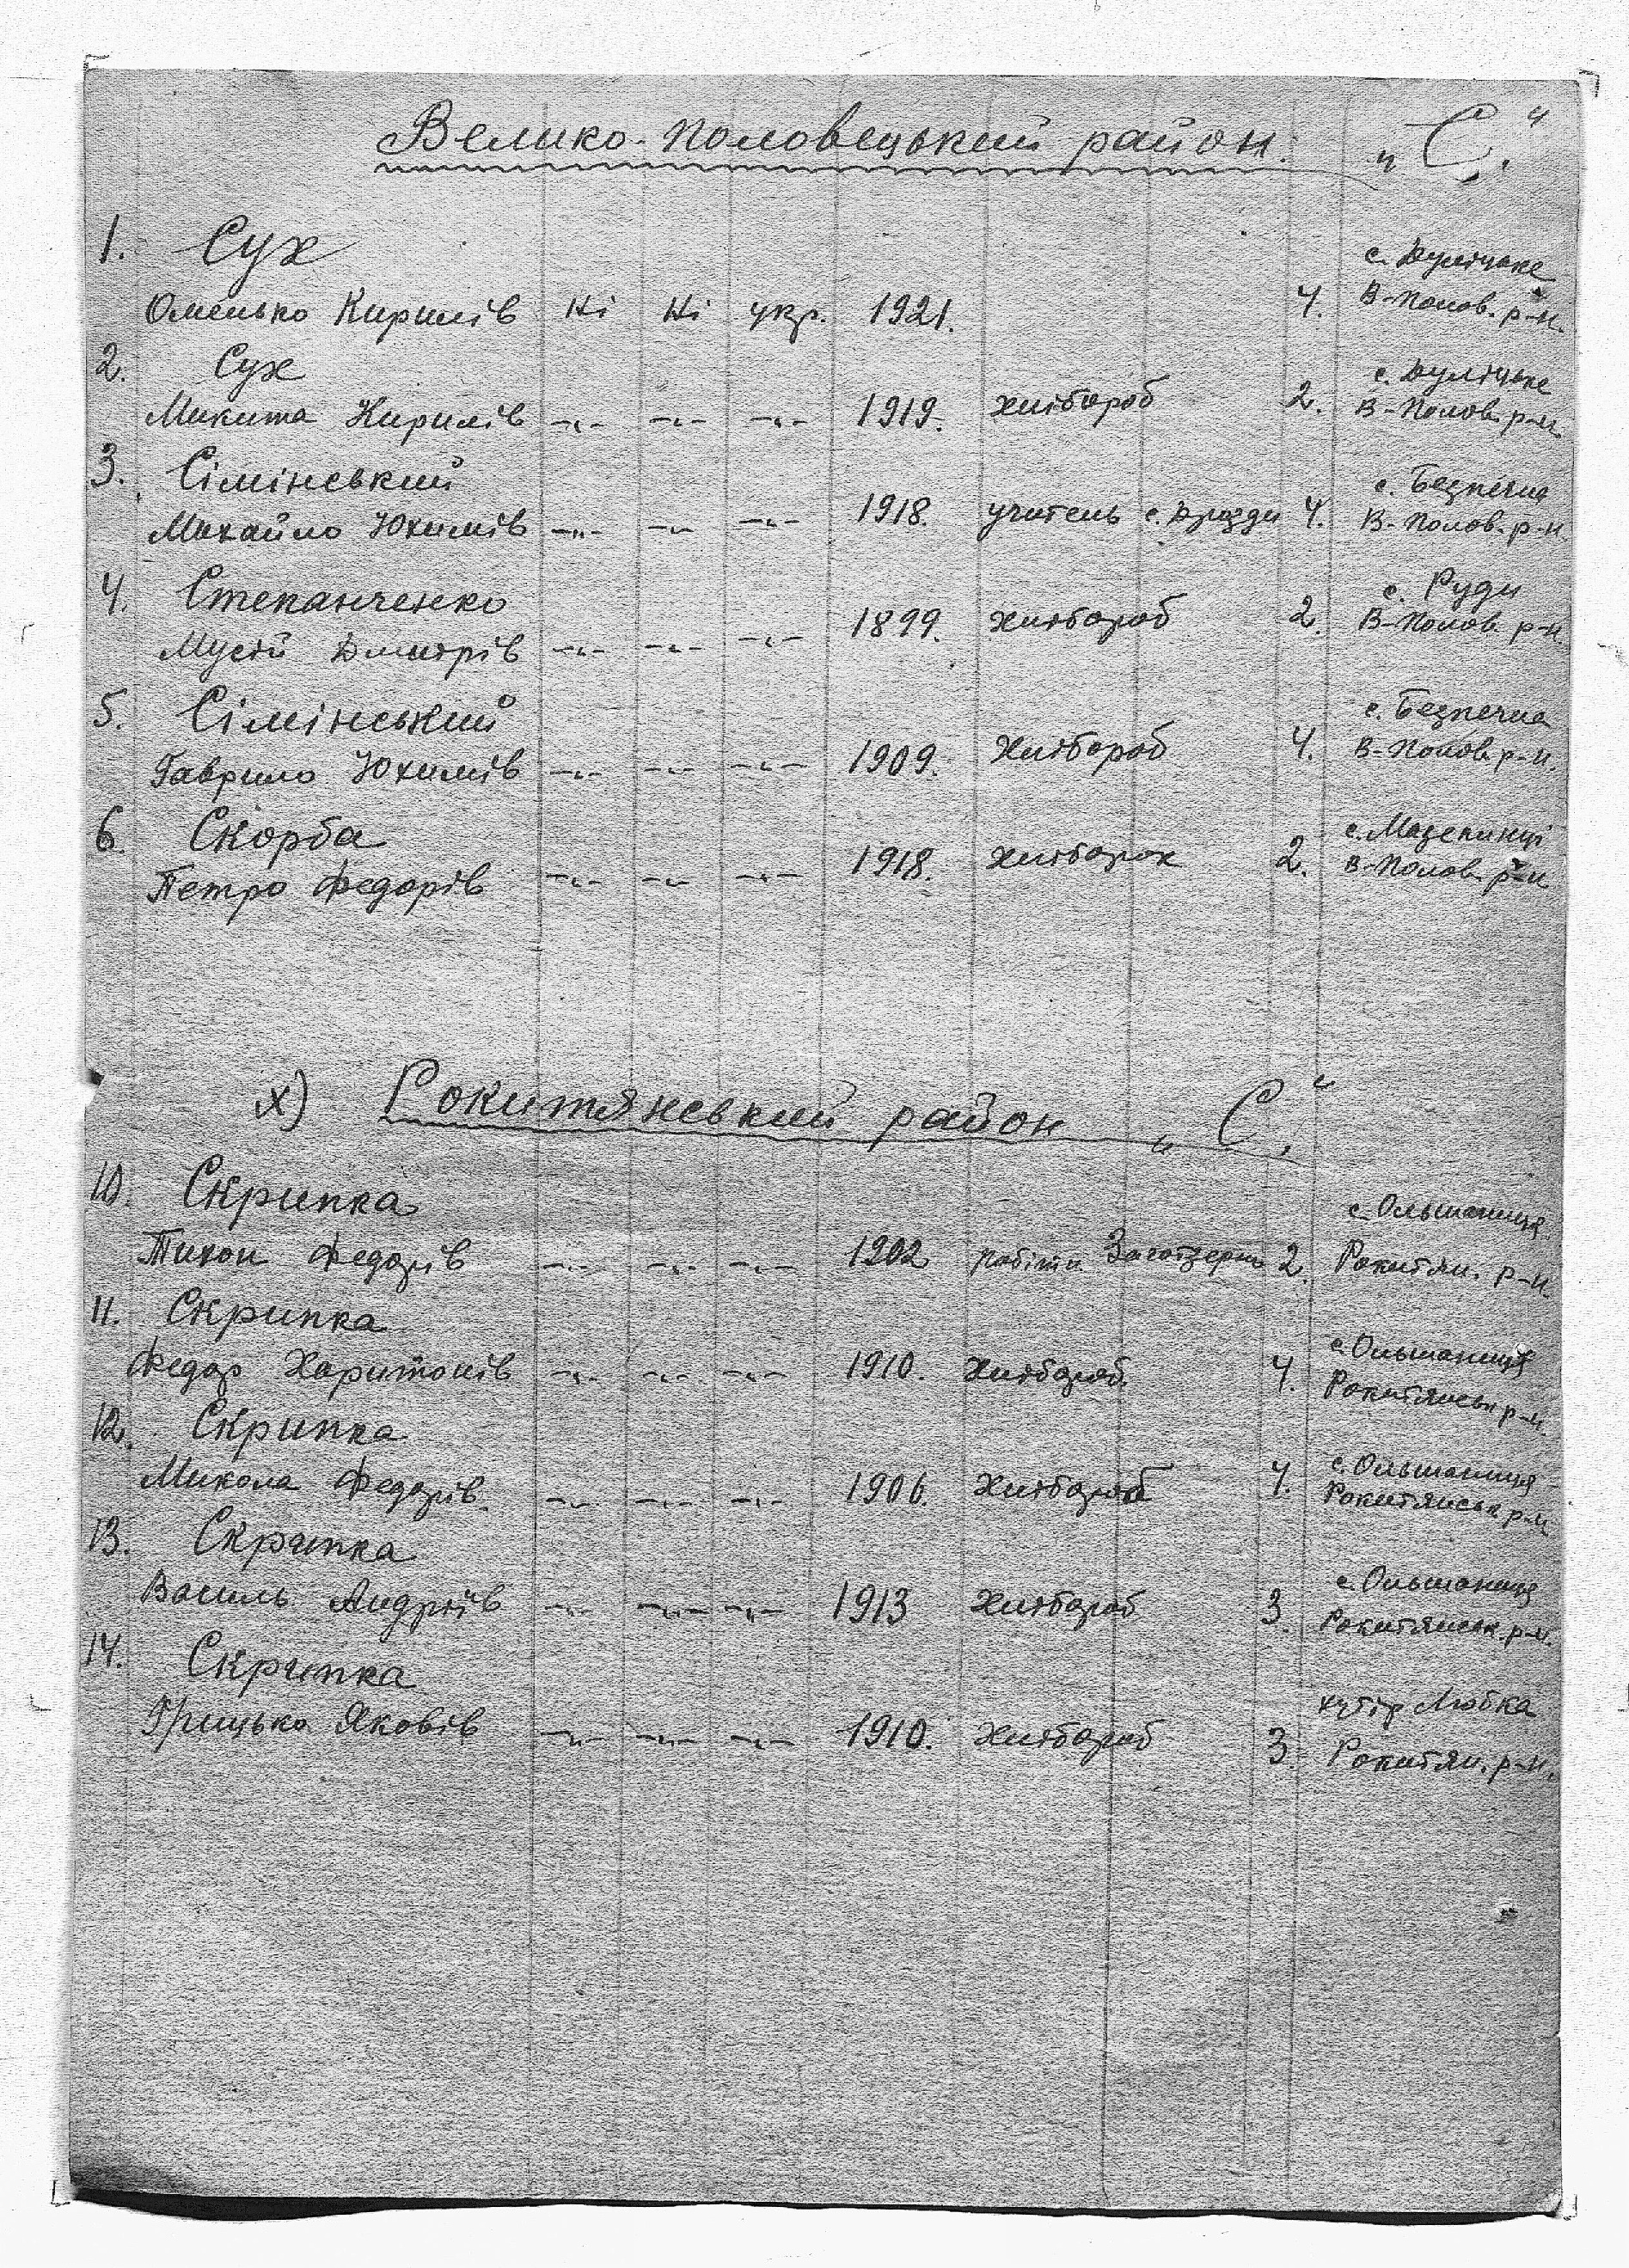 Велико-Половецький район. „С."
1. Сух с. Дулітське
Омелько Кирилів Ні Ні укр. 1921. 4. В-Полов. р-н.
2. Сух с. Дулітське
Микита Кирилів -"- -"- -"- 1919. хлібороб 2. В-Полов. р-н.
3. Сімінський с. Безпечна
Михайло Юхимів -"- -"- -"- 1918. учитель с. Дрозди 4. В-Полов. р-н.
4. Степанченко с. Руди
Мусій Дмитрів -"- -"- -"- 1899. хлібороб 2. В-Полов. р-н.
5. Сімінський с. Безпечна
Гаврило Юхимів -"- -"- -"- 1909. Хлібороб 4. В-Полов. р-н.
6. Скорба с. Мазепинці
Петро Федорів -"- -"- -"- 1918. 2. В-Полов. р-н.
х) Рокитянський район „С."
10. Скрипка с. Ольшаниця
Тихон Федорів -"- -"- -"- 1902 робітн. Заготзерно 2. Рокитян. р-н.
11. Скрипка с. Ольшаниця
Федор Харитонів -"- -"- -"- 1910. хлібороб. 4. Рокитянськ р-н.
12. Скрипка с. Ольшаниця
Микола Федорів. -"- -"- -"- 1906. Хлібороб 4. Рокитянськ р-н
13. Скрипка с. Ольшаниця
Василь Андріїв -"- -"- -"- 1913 Хлібороб 3. Рокитянськ. р-н.
14. Скрипка хутір Любка
Грицько Яковів -"- -"- -"- 1910. Хлібороб 3. Рокитян. р-н.